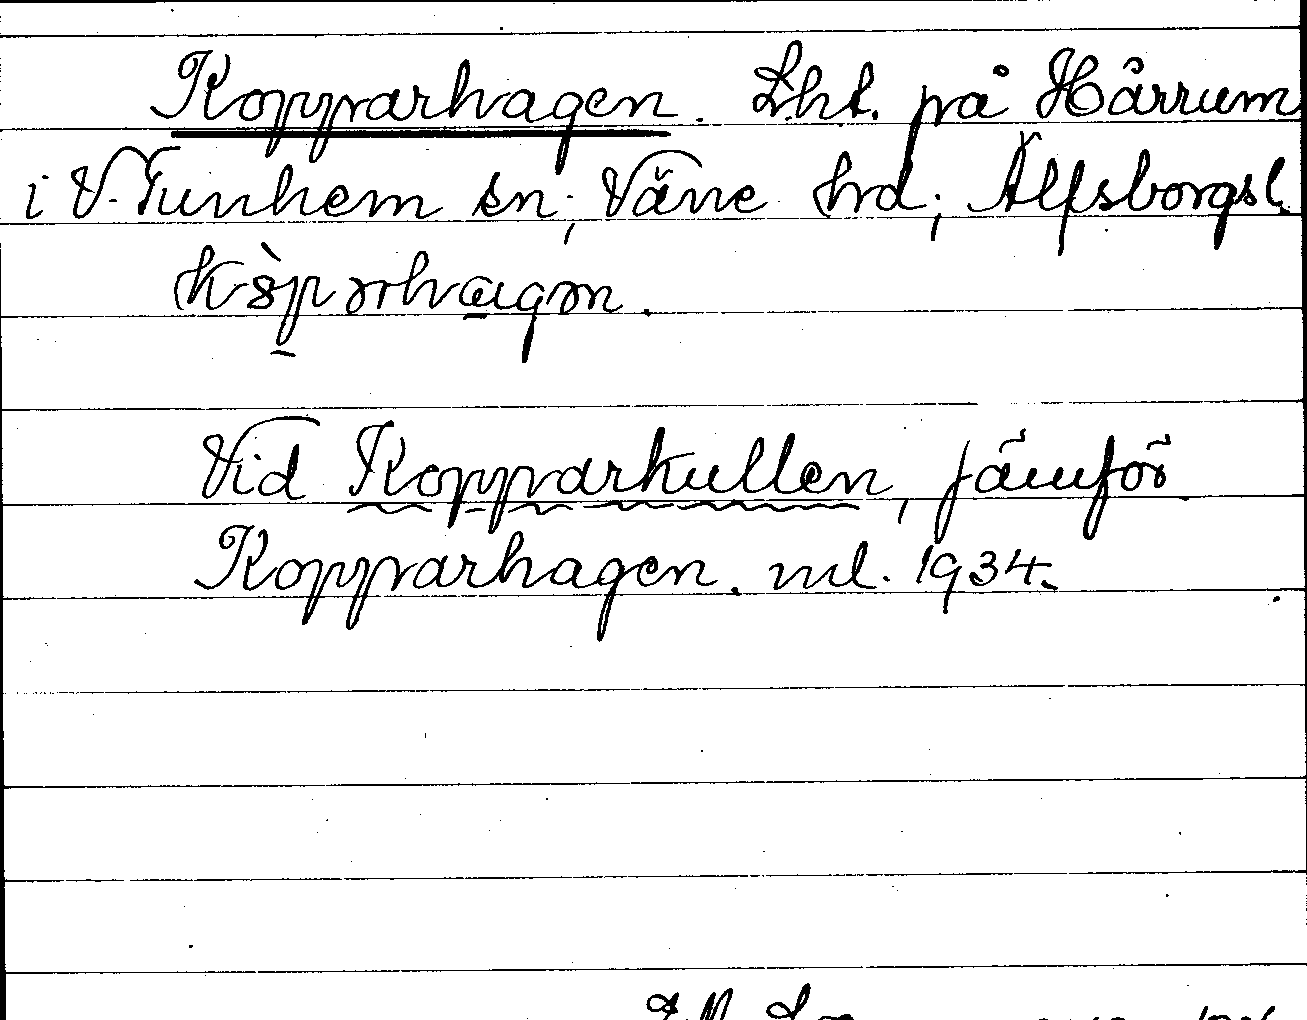 Kopparhagen. Lht. på Hårrum
i V. Tunhem sn; Väne hrd; Älfsborgsl.
kòpərhagən.
Vid Kopparkullen, jämför
Kopparhagen. ml. 1934.